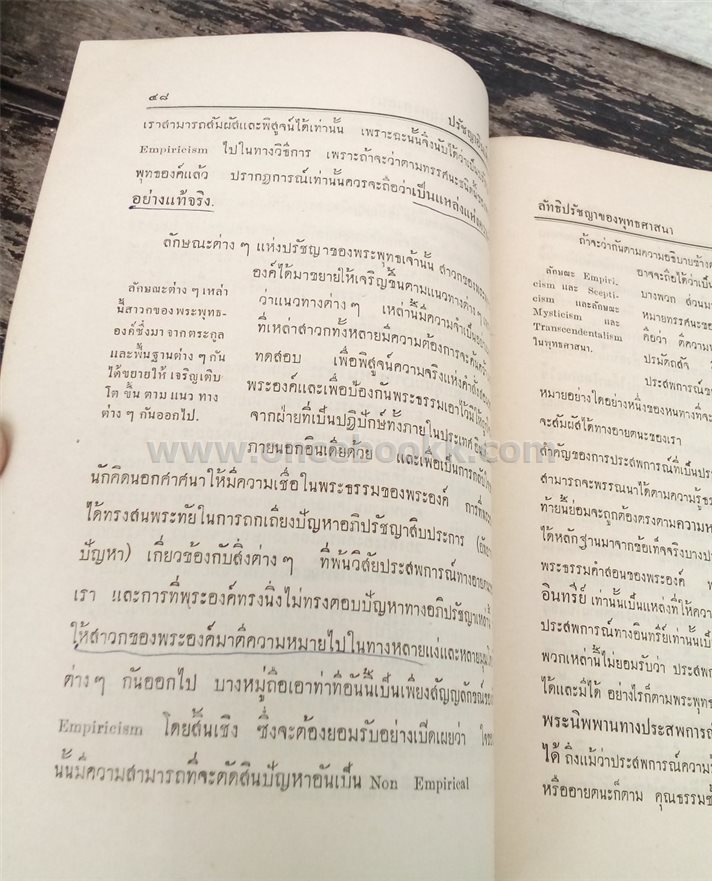 ๔๘
ปรัชญาอิน
เราสามารถสัมผัสและพิสูจน์ได้เท่านั้น เพราะฉะนั้นจึงนับได้ว่าเป็น
Empiricism ไปในทางวิธีการ เพราะถ้าจะว่าตามทรรศนะ
พุทธองค์แล้ว ปรากฏการณ์เท่านั้นควรจะถือว่าเป็นแหล่งแห่ง
อย่างแท้จริง.
ลักษณะต่าง ๆ แห่งปรัชญาของพระพุทธเจ้านั้น สาวกของ
ลักษณะต่าง ๆ เหล่า
นี้สาวกของ พระพุทธ-
องค์ซึ่งมา จากตระกูล
และพื้นฐานต่าง ๆ กัน
ได้ขยายให้ เจริญเติบ
โต ขึ้น ตาม แนว ทาง
ต่าง ๆ กันออกไป.
องค์ได้มาขยายให้เจริญขึ้นตามแนวทางต่าง ๆ
ว่าแนวทางต่าง ๆ เหล่านี้มีความจำเป็น
ที่เหล่าสาวกทั้งหลายมีความต้องการจะ
ทดสอบ เพื่อพิสูจน์ความจริงแห่งคำสั่งสอน
พระองค์และเพื่อป้องกันพระธรรมเอาไว้มิให้
จากฝ่ายที่เป็นปฏิปักษ์ทั้งภายในประเทศ
ภายนอกอินเดียด้วย และเพื่อเป็นการ
นักคิดนอกศาสนาให้มีความเชื่อในพระธรรมของพระองค์ การที่
ได้ทรงสนพระทัยในการถกเถียงปัญหาอภิปรัชญาสิบประการ
ปัญหา) เกี่ยวข้องกับสิ่งต่าง ๆ ที่พ้นวิสัยประสพการณ์ทาง
เรา และการที่พุระองค์ทรงนิ่งไม่ทรงตอบปัญหาทางอภิปรัชญาเหล่านี้
ให้สาวกของพระองค์มาตีความหมายไปในทางหลายแง่และหลาย
ต่างๆ กันออกไป บางหมู่ถือเอาท่าทีอันนี้เป็นเพียงสัญญลักษณ์ของ
Empiricism โดยสิ้นเชิง ซึ่งจะต้องยอมรับอย่างเปิดเผยว่า
นั้นมีความสามารถที่จะตัดสินปัญหาอันเป็น Non Empirical
www.oncebookk.com
ลัทธิปรัชญาของพุทธศาสนา
ถ้าจะว่ากันตามความอธิบายข้าง
ลักษณะ Empiri-
cism และ Scepti-
cism และลักษณะ
Mysticism และ
Transcendentalism
ในพุทธศาสนา.
อาจจะถือได้ว่าเป็น
บางพวก ส่วน
หมายทรรศนะของ
คือว่า ตีความ
ปรมัตถสัจ
ประสพการณ์ข
หมายอย่างใดอย่างหนึ่งของหนทางที่จะ
จะสัมผัสได้ทางอายตนะของเรา
สำคัญของการประสพการณ์ที่เป็น
สามารถจะพรรณนาได้ตามความรู้
ท้ายนี้ย่อมจะถูกต้องตรงตามความ
ได้หลักฐานมาจากข้อเท็จจริงบาง
พระธรรมคำสอนของพระองค์
อินทรีย์ เท่านั้นเป็นแหล่งที่ให้ความ
ประสพการณ์ทางอินทรีย์เท่านั้นเป็น
พวกเหล่านี้ไม่ยอมรับว่า ประสพ
ได้และมีได้ อย่างไรก็ตามพระพุทธ
พระนิพพานทางประสพการณ์
ได้ ถึงแม้ว่าประสพการณ์ความ
หรืออายตนะก็ตาม คุณธรรม